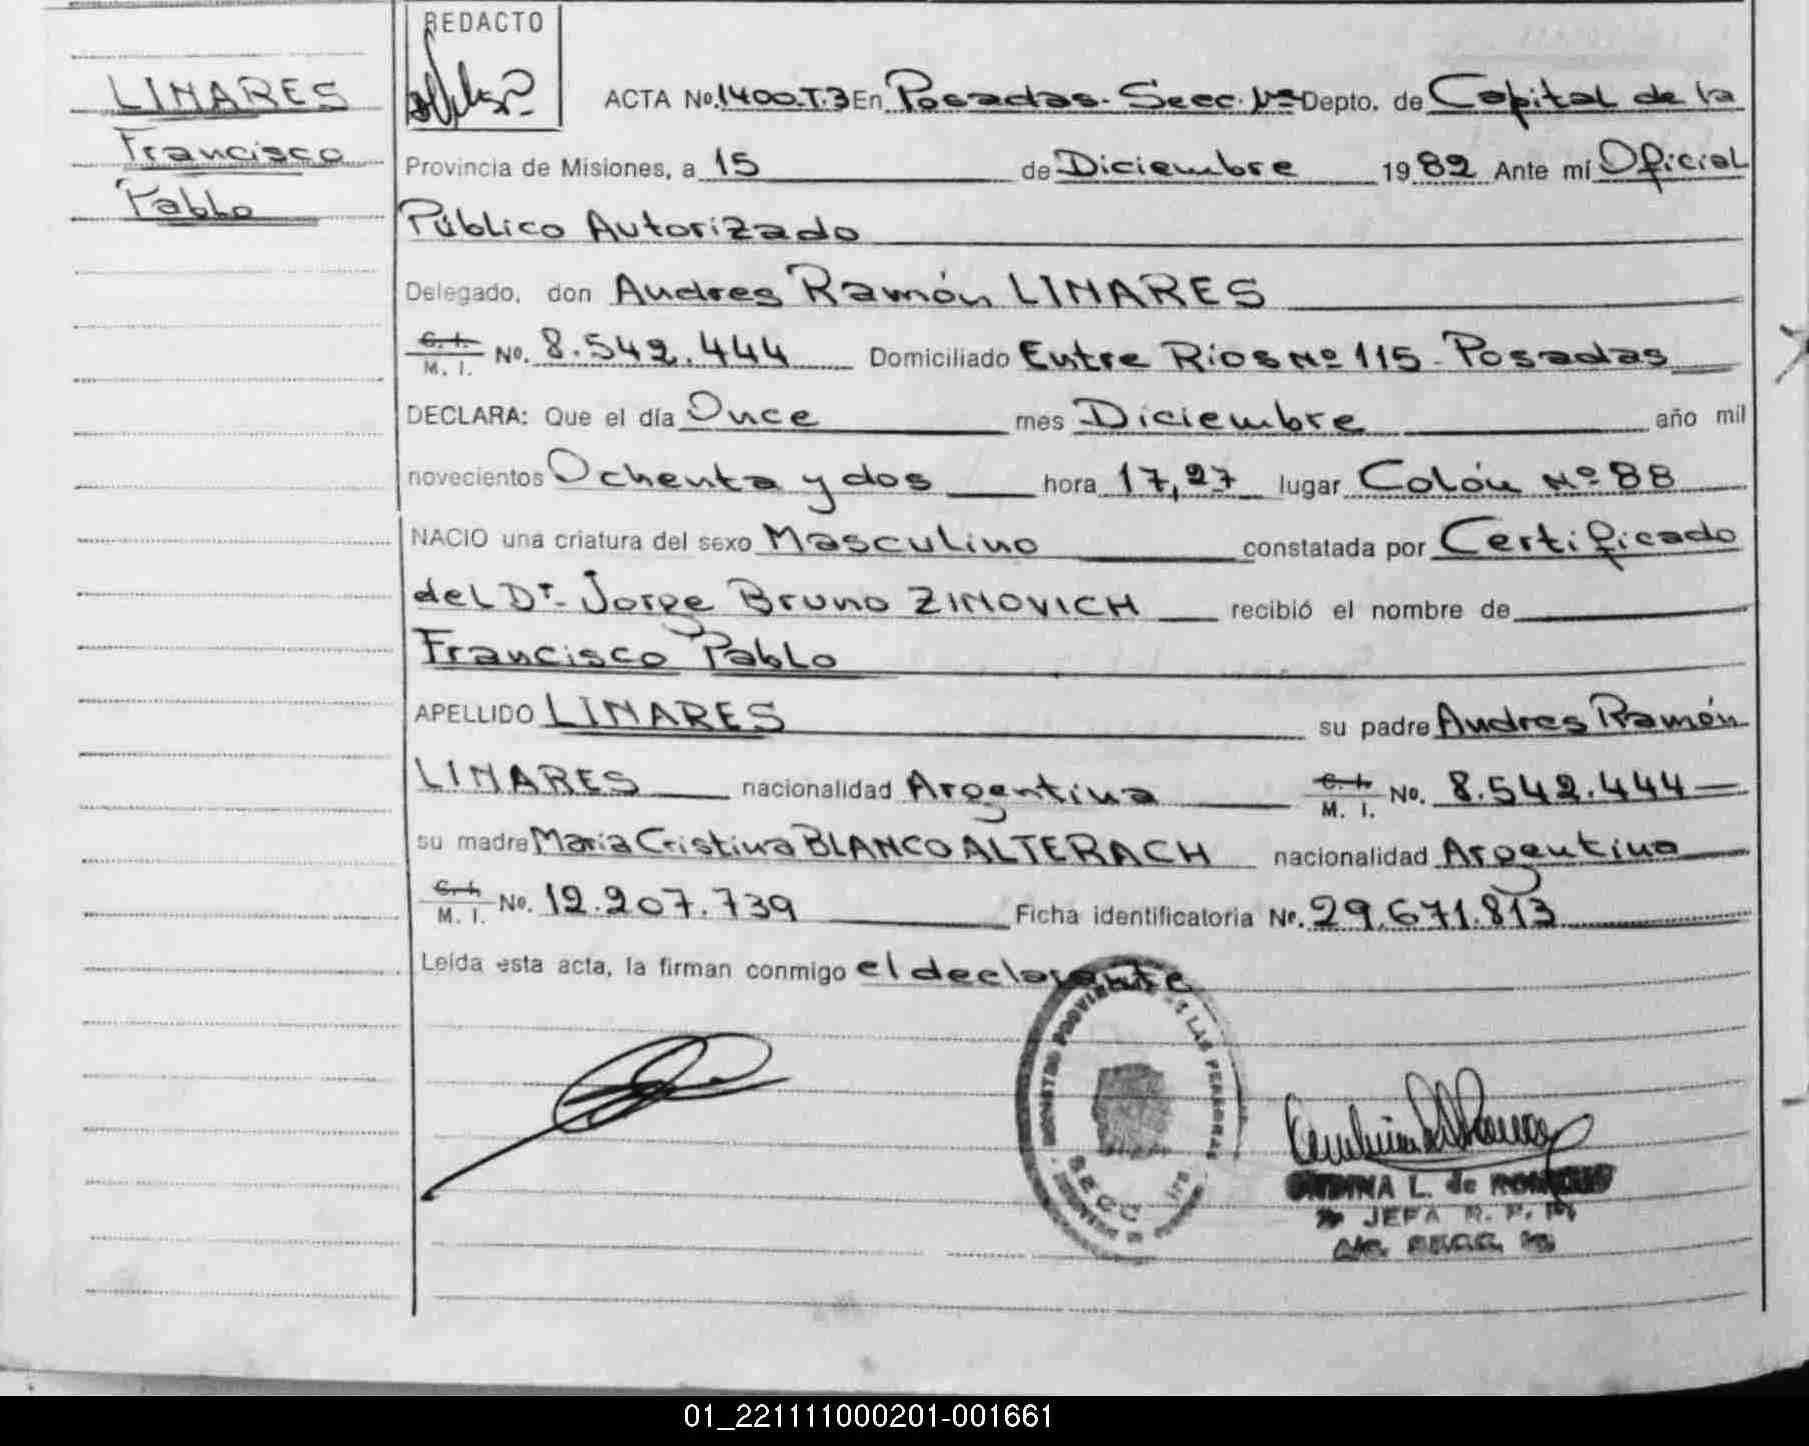 REDACTO
LINARES
Francisco
Pablo
ACTA No. 1400.T.3 En Posadas. Secc. 1ra Depto. de Capital de la
Provincia de Misiones, a 15 de Diciembre 1982 Ante mí Oficial
Público Autorizado
Delegado, don Andres Ramón LINARES
C. I. M. I. No. 8.542.444 Domiciliado Entre Ríos Nº 115 - Posadas
DECLARA: Que el día Once mes Diciembre año mil
novecientos Ochenta y dos hora 17,27 lugar Colón Nº 88
NACIO una criatura del sexo Masculino constatada por Certificado
del Dr. Jorge Bruno ZINOVICH recibió el nombre de
Francisco Pablo
APELLIDO LINARES su padre Andres Ramón
LINARES nacionalidad Argentina C. I. M. I. No. 8.542.444
su madre María Cristina BLANCO ALTERACH nacionalidad Argentina
C. I. M. I. No. 12.207.739 Ficha identificatoria No. 29.671.813
Leída esta acta, la firman conmigo el declarante
REGISTRO PROVINCIAL DE LAS PERSONAS
SECC.
L. de
JEFA R. P.
01_221111000201-001661